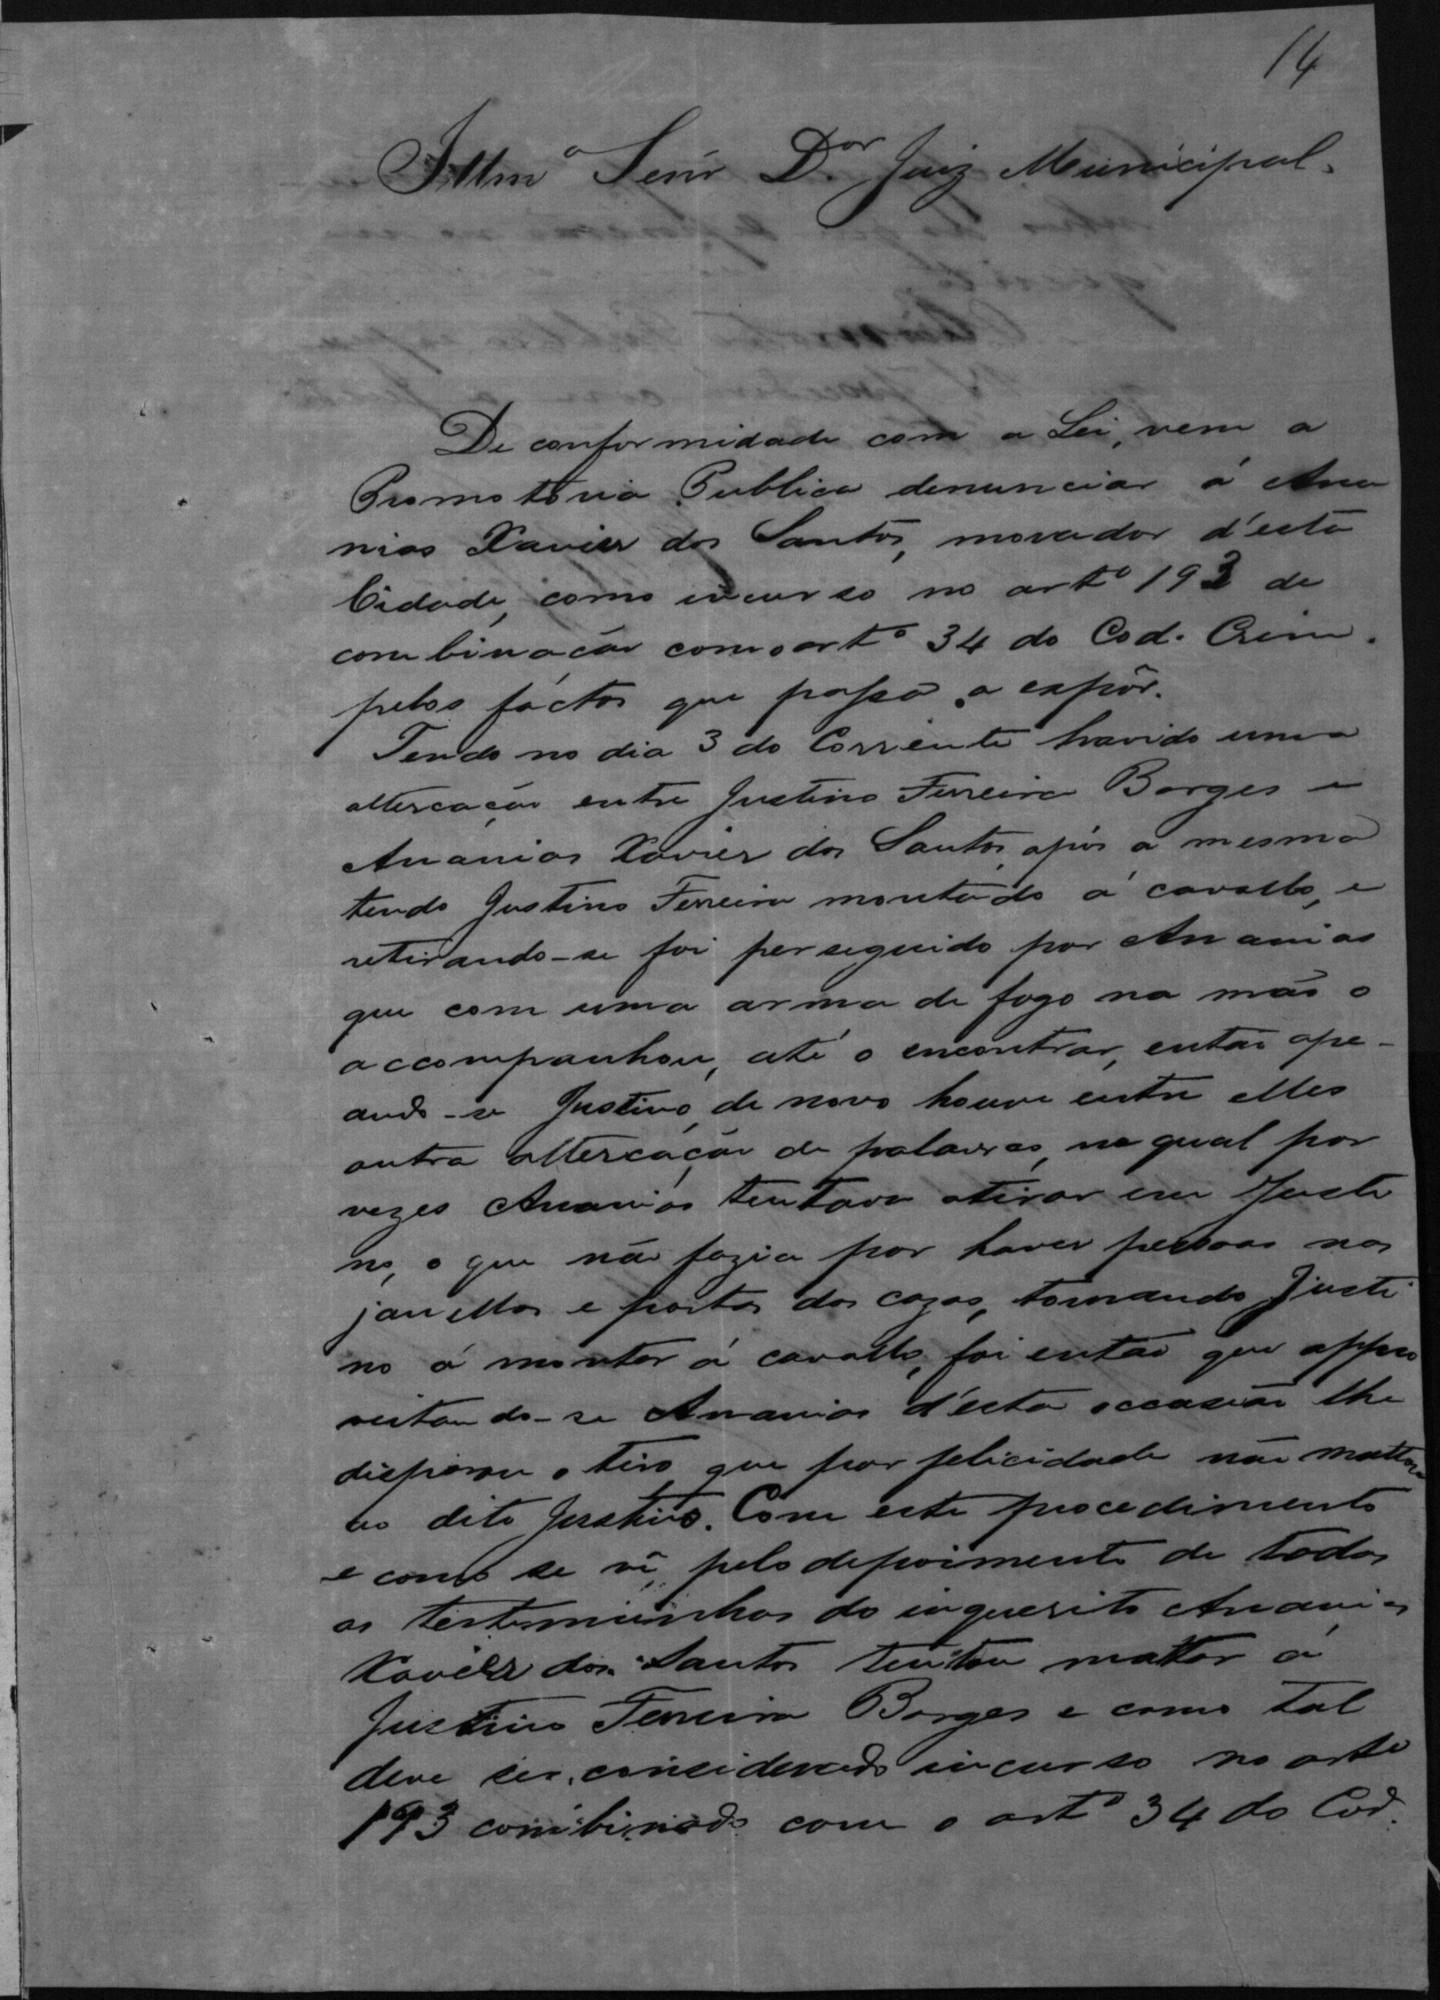 14
Illmº Senr Dor Juiz Municipal.
De conformidade com a Lei, vem a
Promotoria Publica denunciar á Ana
nias Xavier dos Santos, morador d'esta
Cidade, como incurso no artº 193 de
combinação com o artº 34 do Cod. Crim.
pelos fáctos que passo a expôr.
Tendo no dia 3 do Corrente havido uma
altercação entre Justino Ferreira Borges e
Ananias Xavier dos Santos, após a mesma
tendo Justino Ferreira montado á cavallo, e
retirando-se foi perseguido por Ananias
que com uma arma de fogo na mão o
accompanhou, até o encontrar, então ape-
ando-se Justino, de novo houve entre elles
outra altercação de palavras, na qual por
vezes Ananias tentava atirar em Justi
no, o que não fazia por haver pessoas nas
janellas e portas das cazas, tornando Justi
no á montar á cavallo, foi então que appro
veitando-se Ananias d'esta occasião lhe
disparou o tiro que por felicidade não mattou
ao dito Justino. Com este procedimento
e como se vê pelo depoimento de todas
as testemunhas do inquerito Ananias
Xavier dos Santos tentou mattar á
Justino Ferreira Borges e como tal
deve ser considerado incurso no artº
193 combinado com o artº 34 do Cod.